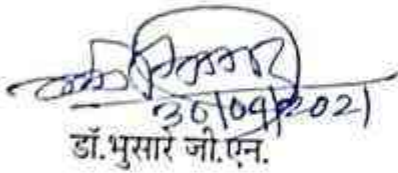 30/09/2021
डॉ.भुसारे जी.एन.